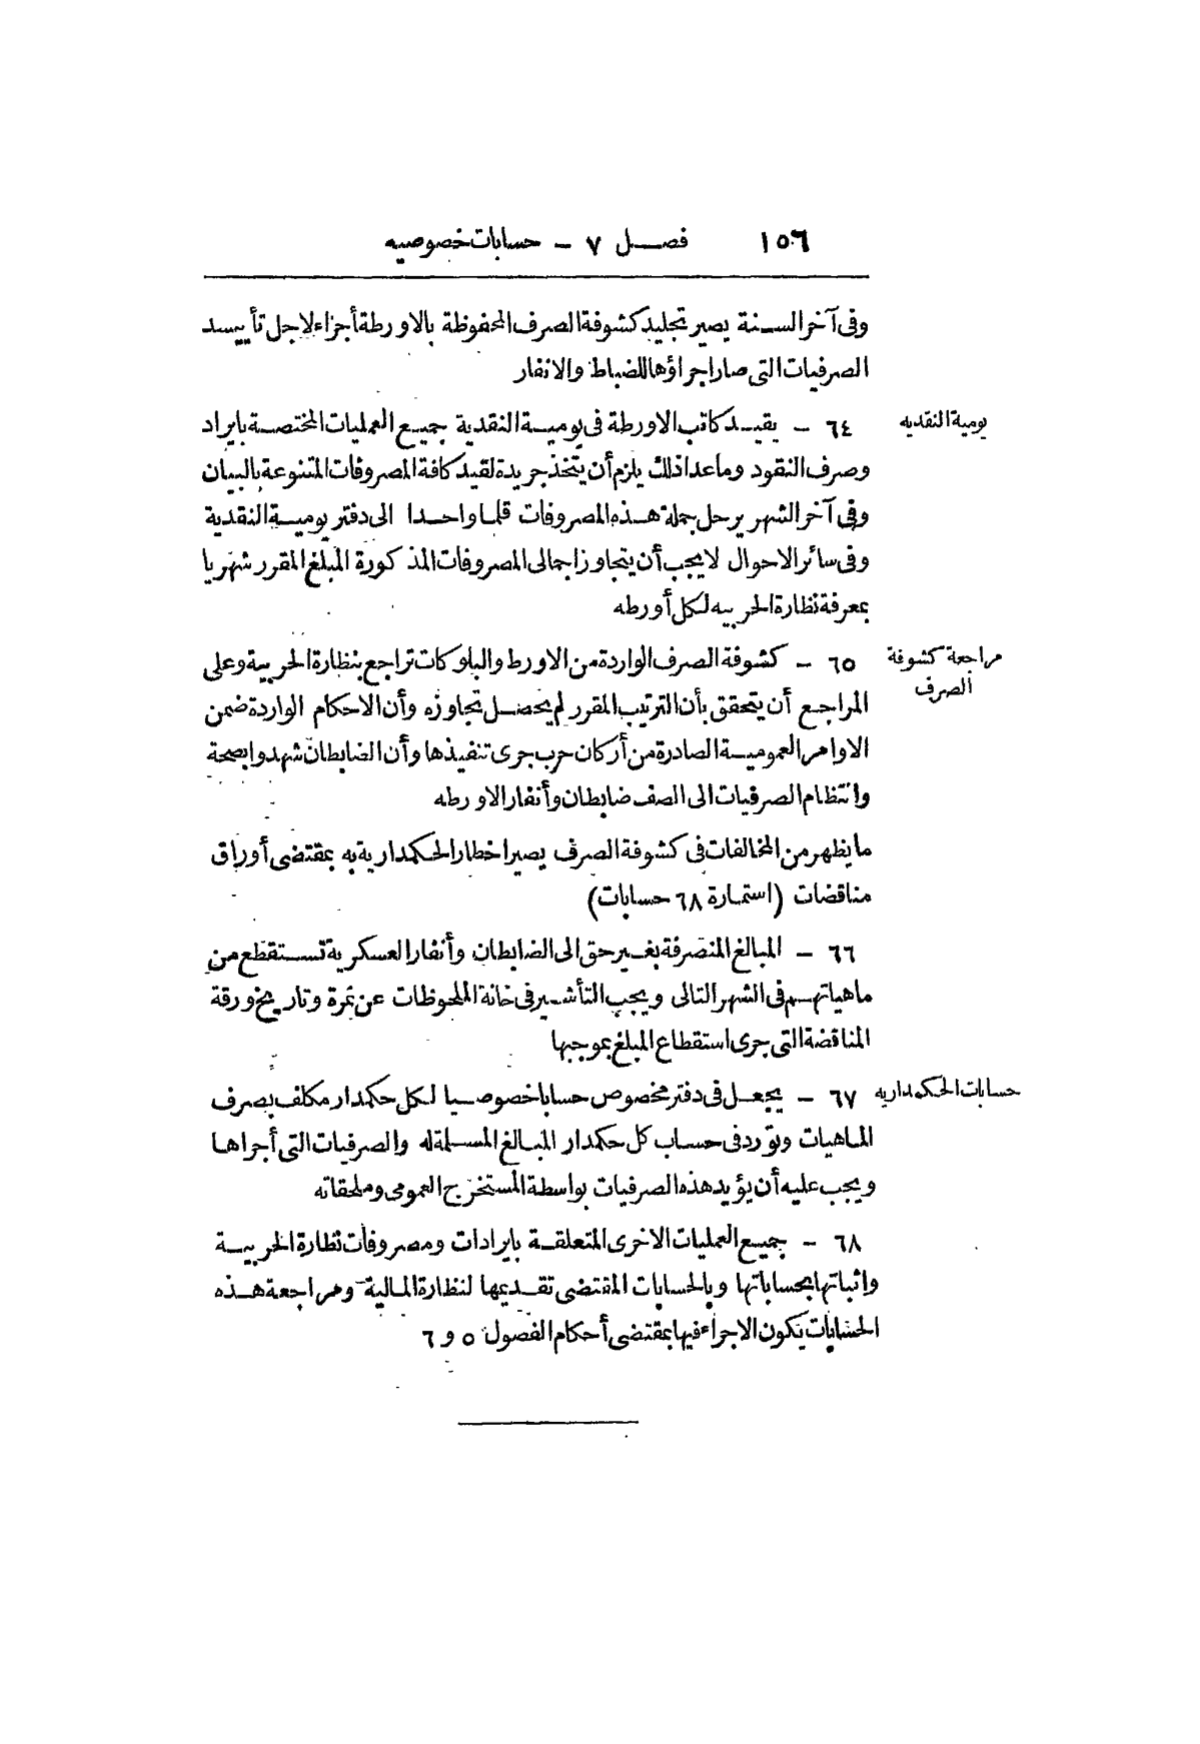 ١٥٦ فصل ٧ – حسابات خصوصيه
وفى آخر السنة يصير تجليد كشوفة الصرف المحفوظة بالاورطة أجزاء لاجل تأييد
الصرفيات التى صار اجراؤها للضباط والانفار
يومية النقديه
٦٤ – يقيد كاتب الاورطة فى يومية النقدية جميع العمليات المختصة بايراد
وصرف النقود وما عدا ذلك يلزم أن يتخذ جريدة لقيد كافة المصروفات المتنوعة بالبيان
وفى آخر الشهر يرحل جملة هذه المصروفات قلما واحدا الى دفتر يومية النقدية
وفى سائر الاحوال لا يجب أن يتجاوز اجمالى المصروفات المذكورة المبلغ المقرر شهريا
بمعرفة نظارة الحربيه لكل أورطه
مراجعة كشوفة
الصرف
٦٥ – كشوفة الصرف الواردة من الاورط والبلوكات تراجع بنظارة الحربية وعلى
المراجع أن يتحقق بأن الترتيب المقرر لم يحصل تجاوزه وأن الاحكام الواردة ضمن
الاوامر العمومية الصادرة من أركان حرب جرى تنفيذها وأن الضابطان شهدوا بصحة
وانتظام الصرفيات الى الصف ضابطان وأنفار الاورطه
ما يظهر من المخالفات فى كشوفة الصرف يصير اخطار الحكمدارية به بمقتضى أوراق
مناقضات (استمارة ٦٨ حسابات)
٦٦ – المبالغ المنصرفة بغير حق الى الضابطان وأنفار العسكرية تستقطع من
ماهياتهم فى الشهر التالى ويجب التأشير فى خانة الملحوظات عن نمرة وتاريخ ورقة
المناقضة التى جرى استقطاع المبلغ بموجبها
حسابات الحكمداريه
٦٧ – يجعل فى دفتر مخصوص حسابا خصوصيا لكل حكمدار مكلف بصرف
الماهيات وتورد فى حساب كل حكمدار المبالغ المسلمة له والصرفيات التى أجراها
ويجب عليه أن يؤيد هذه الصرفيات بواسطة المستخرج العمومى وملحقاته
٦٨ – جميع العمليات الاخرى المتعلقة بايرادات ومصروفات نظارة الحربية
واثباتها بحساباتها وبالحسابات المقتضى تقديمها لنظارة المالية ومراجعة هذه
الحسابات يكون الاجراء فيها بمقتضى أحكام الفصول ٥ و ٦